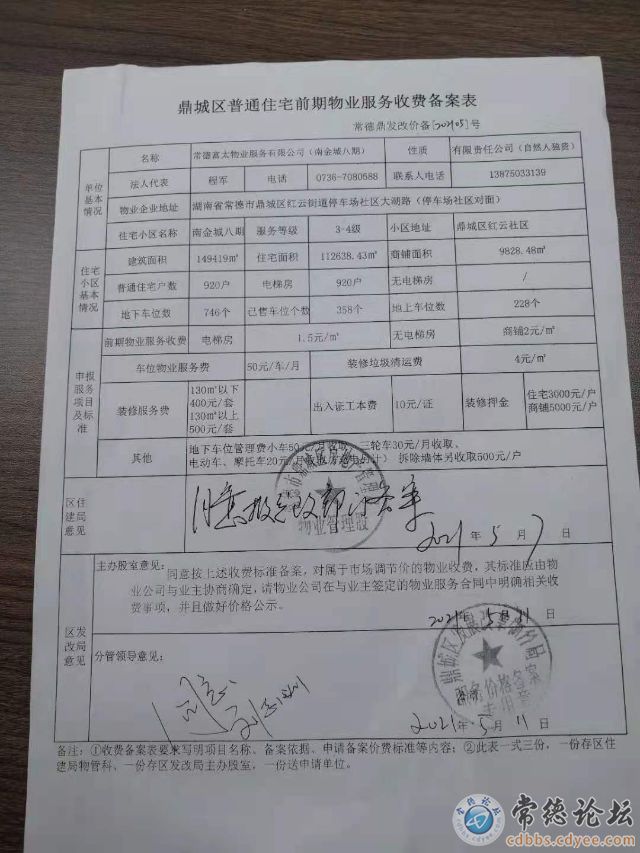 鼎城区普通住宅前期物业服务收费备案表
常德鼎发改价备[202105]号
单位基本情况
名称 常德富太物业服务有限公司（南金城八期） 性质 有限责任公司（自然人独资）
法人代表 程军 电话 0736-7080588 联系人电话 13875033139
物业企业地址 湖南省常德市鼎城区红云街道停车场社区大湖路（停车场社区对面）
住宅小区名称 南金城八期 服务等级 3-4级 小区地址 鼎城区红云社区
住宅小区基本情况
建筑面积 149419㎡ 住宅面积 112638.43㎡ 商铺面积 9828.48㎡
普通住宅户数 920户 电梯房 920户 无电梯房 /
地下车位数 746个 已售车位个数 358个 地上车位数 228个
申报服务项目及标准
前期物业服务收费 电梯房 1.5元/㎡ 无电梯房 商铺2元/㎡
车位物业服务费 50元/车/月 装修垃圾清运费 4元/㎡
装修服务费 130㎡以下 400元/套 130㎡以上 500元/套 出入证工本费 10元/证 装修押金 住宅3000元/户 商铺5000元/户
其他 地下车位管理费小车50元/月收取、三轮车30元/月收取、
电动车、摩托车20元/月收取 拆除墙体另收取500元/户
区住建局意见
同意报发改部门备案
物业管理股
2021年5月7日
区发改局意见
主办股室意见：
同意按上述收费标准备案，对属于市场调节价的物业收费，其标准应由物
业公司与业主协商确定，请物业公司在与业主签定的物业服务合同中明确相关收
费事项，并且做好价格公示。
2021年5月11日
鼎城区发展改革
服务价格备案
专用章
分管领导意见：
同意
2021.5月11日
备注：①收费备案表要求写明项目名称、备案依据、申请备案价费标准等内容；②此表一式三份，一份存区住
建局物管科、一份存区发改局主办股室，一份送申请单位。
常德论坛
cdbbs.cdyee.com